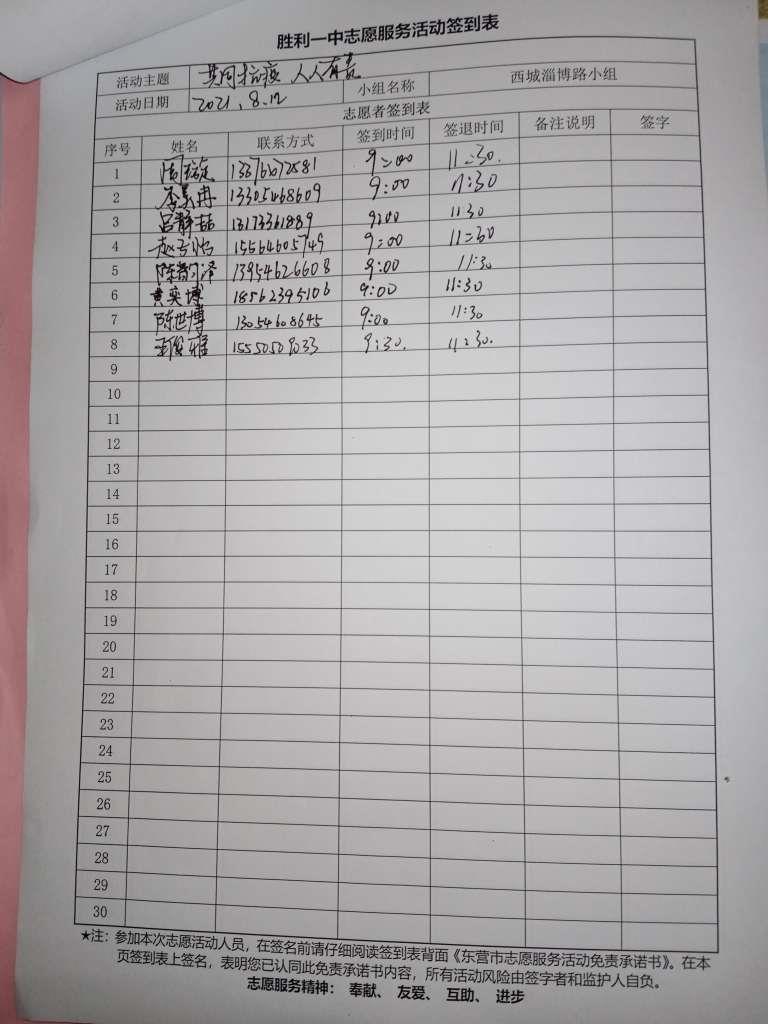 胜利一中志愿服务活动签到表
活动主题 共同抗疫 人人有责 小组名称 西城淄博路小组
活动日期 2021.8.12
志愿者签到表
序号 姓名 联系方式 签到时间 签退时间 备注说明 签字
1 9:00 11:30.
2 13305468609 9:00 11:30
3 吕静 13173361889 9:00 11:30
4 赵 15564605749 9:00 11:30
5 陈 泽 13954626608 9:00 11:30
6 黄奕博 18562395106 9:00 11:30
7 陈世博 13054608645 9:00 11:30
8 雅 15550509033 9:30. 11:30.
9
10
11
12
13
14
15
16
17
18
19
20
21
22
23
24
25
26
27
28
29
30
★注：参加本次志愿活动人员，在签名前请仔细阅读签到表背面《东营市志愿服务活动免责承诺书》。在本
页签到表上签名，表明您已认同此免责承诺书内容，所有活动风险由签字者和监护人自负。
志愿服务精神： 奉献、 友爱、 互助、 进步